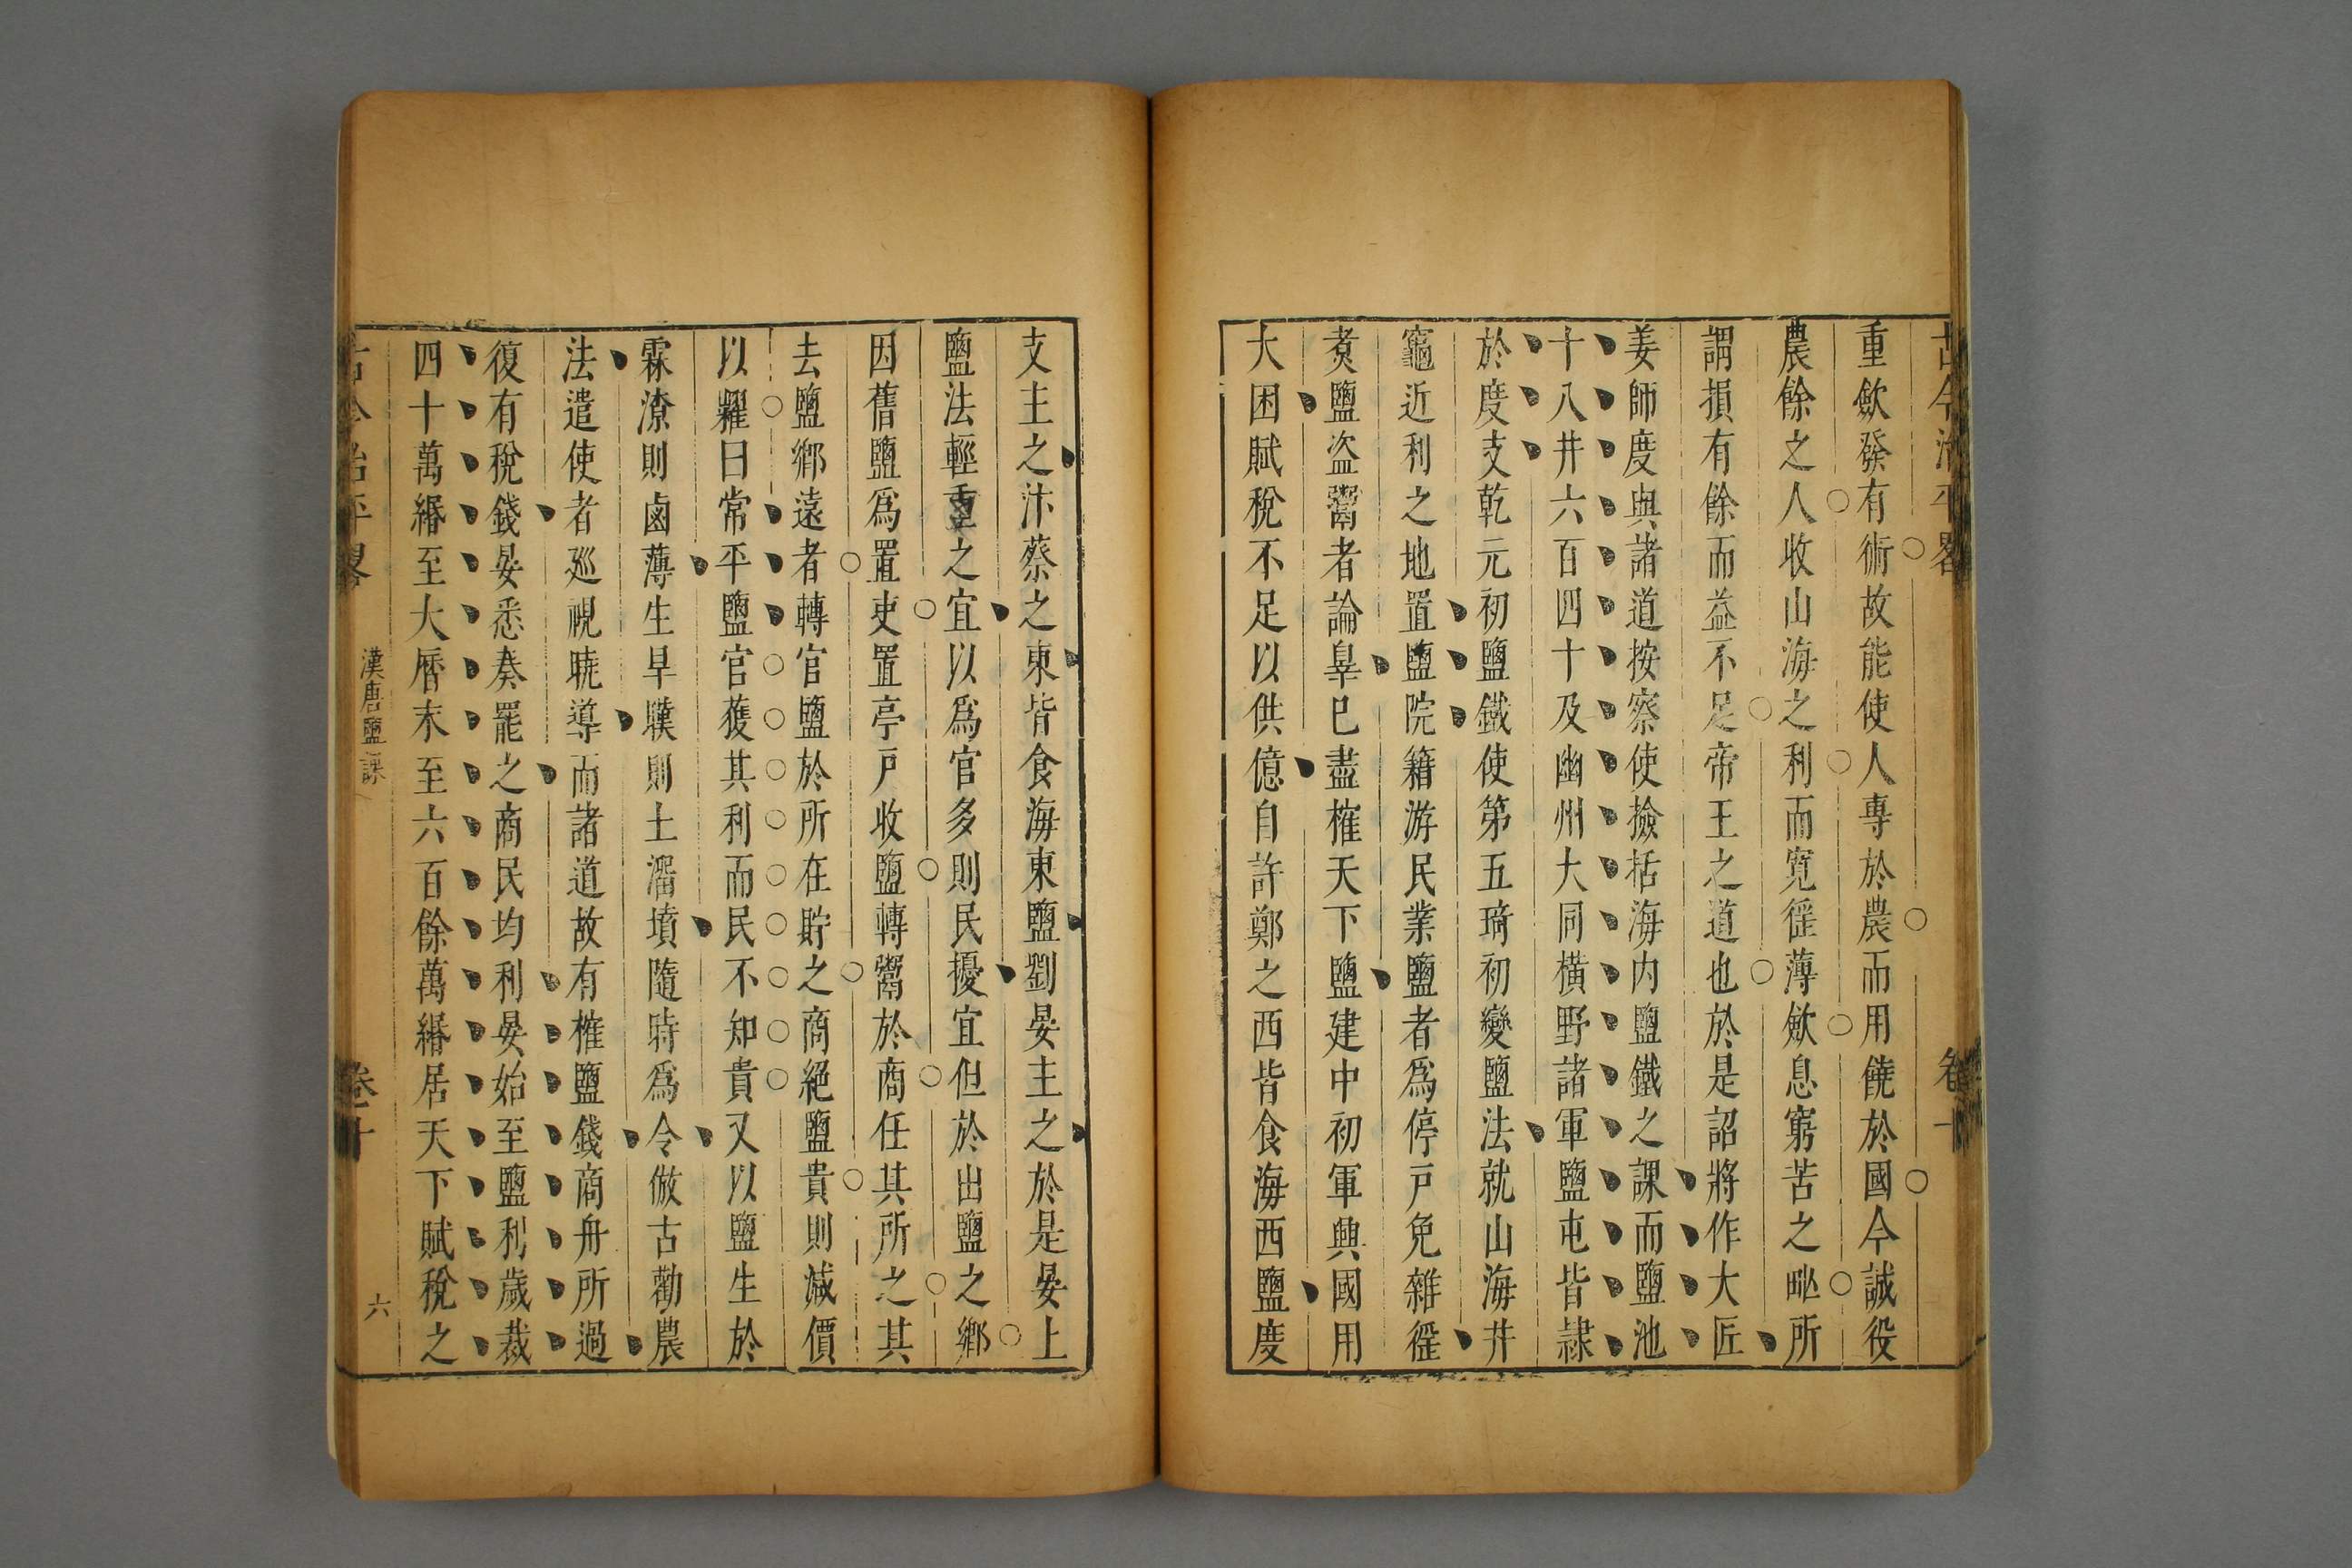 古今治平畧　卷十
重斂發有術故能使人專於農而用饒於國今誠役
農餘之人收山海之利而寬徭薄斂息窮苦之甿所
謂損有餘而益不足帝王之道也於是詔將作大匠
姜師度與諸道按察使撿括海内鹽鐵之課而鹽池
十八井六百四十及幽州大同橫野諸軍鹽屯皆隷
於度支乾元初鹽鐵使第五琦初變鹽法就山海井
竈近利之地置鹽院籍游民業鹽者爲停戸免雜徭
煑鹽盗鬻者論辠巳盡榷天下鹽建中初軍興國用
大困賦稅不足以供億自許鄭之西皆食海西鹽度
支主之汴蔡之東皆食海東鹽劉晏主之於是晏上
鹽法輕重之宜以爲官多則民擾宜但於出鹽之鄉
因舊鹽爲置吏置亭戸收鹽轉鬻於商任其所之其
去鹽鄉遠者轉官鹽於所在貯之商絕鹽貴則減價
以糶曰常平鹽官獲其利而民不知貴又以鹽生於
霖潦則鹵薄生旱暵則土溜墳隨時爲令倣古勸農
法遣使者廵視曉導而諸道故有榷鹽錢商舟所過
復有稅錢晏悉奏罷之商民均利晏始至鹽利歲裁
四十萬緡至大曆末至六百餘萬緡居天下賦稅之
古今治平畧　漢唐鹽課　卷十　六